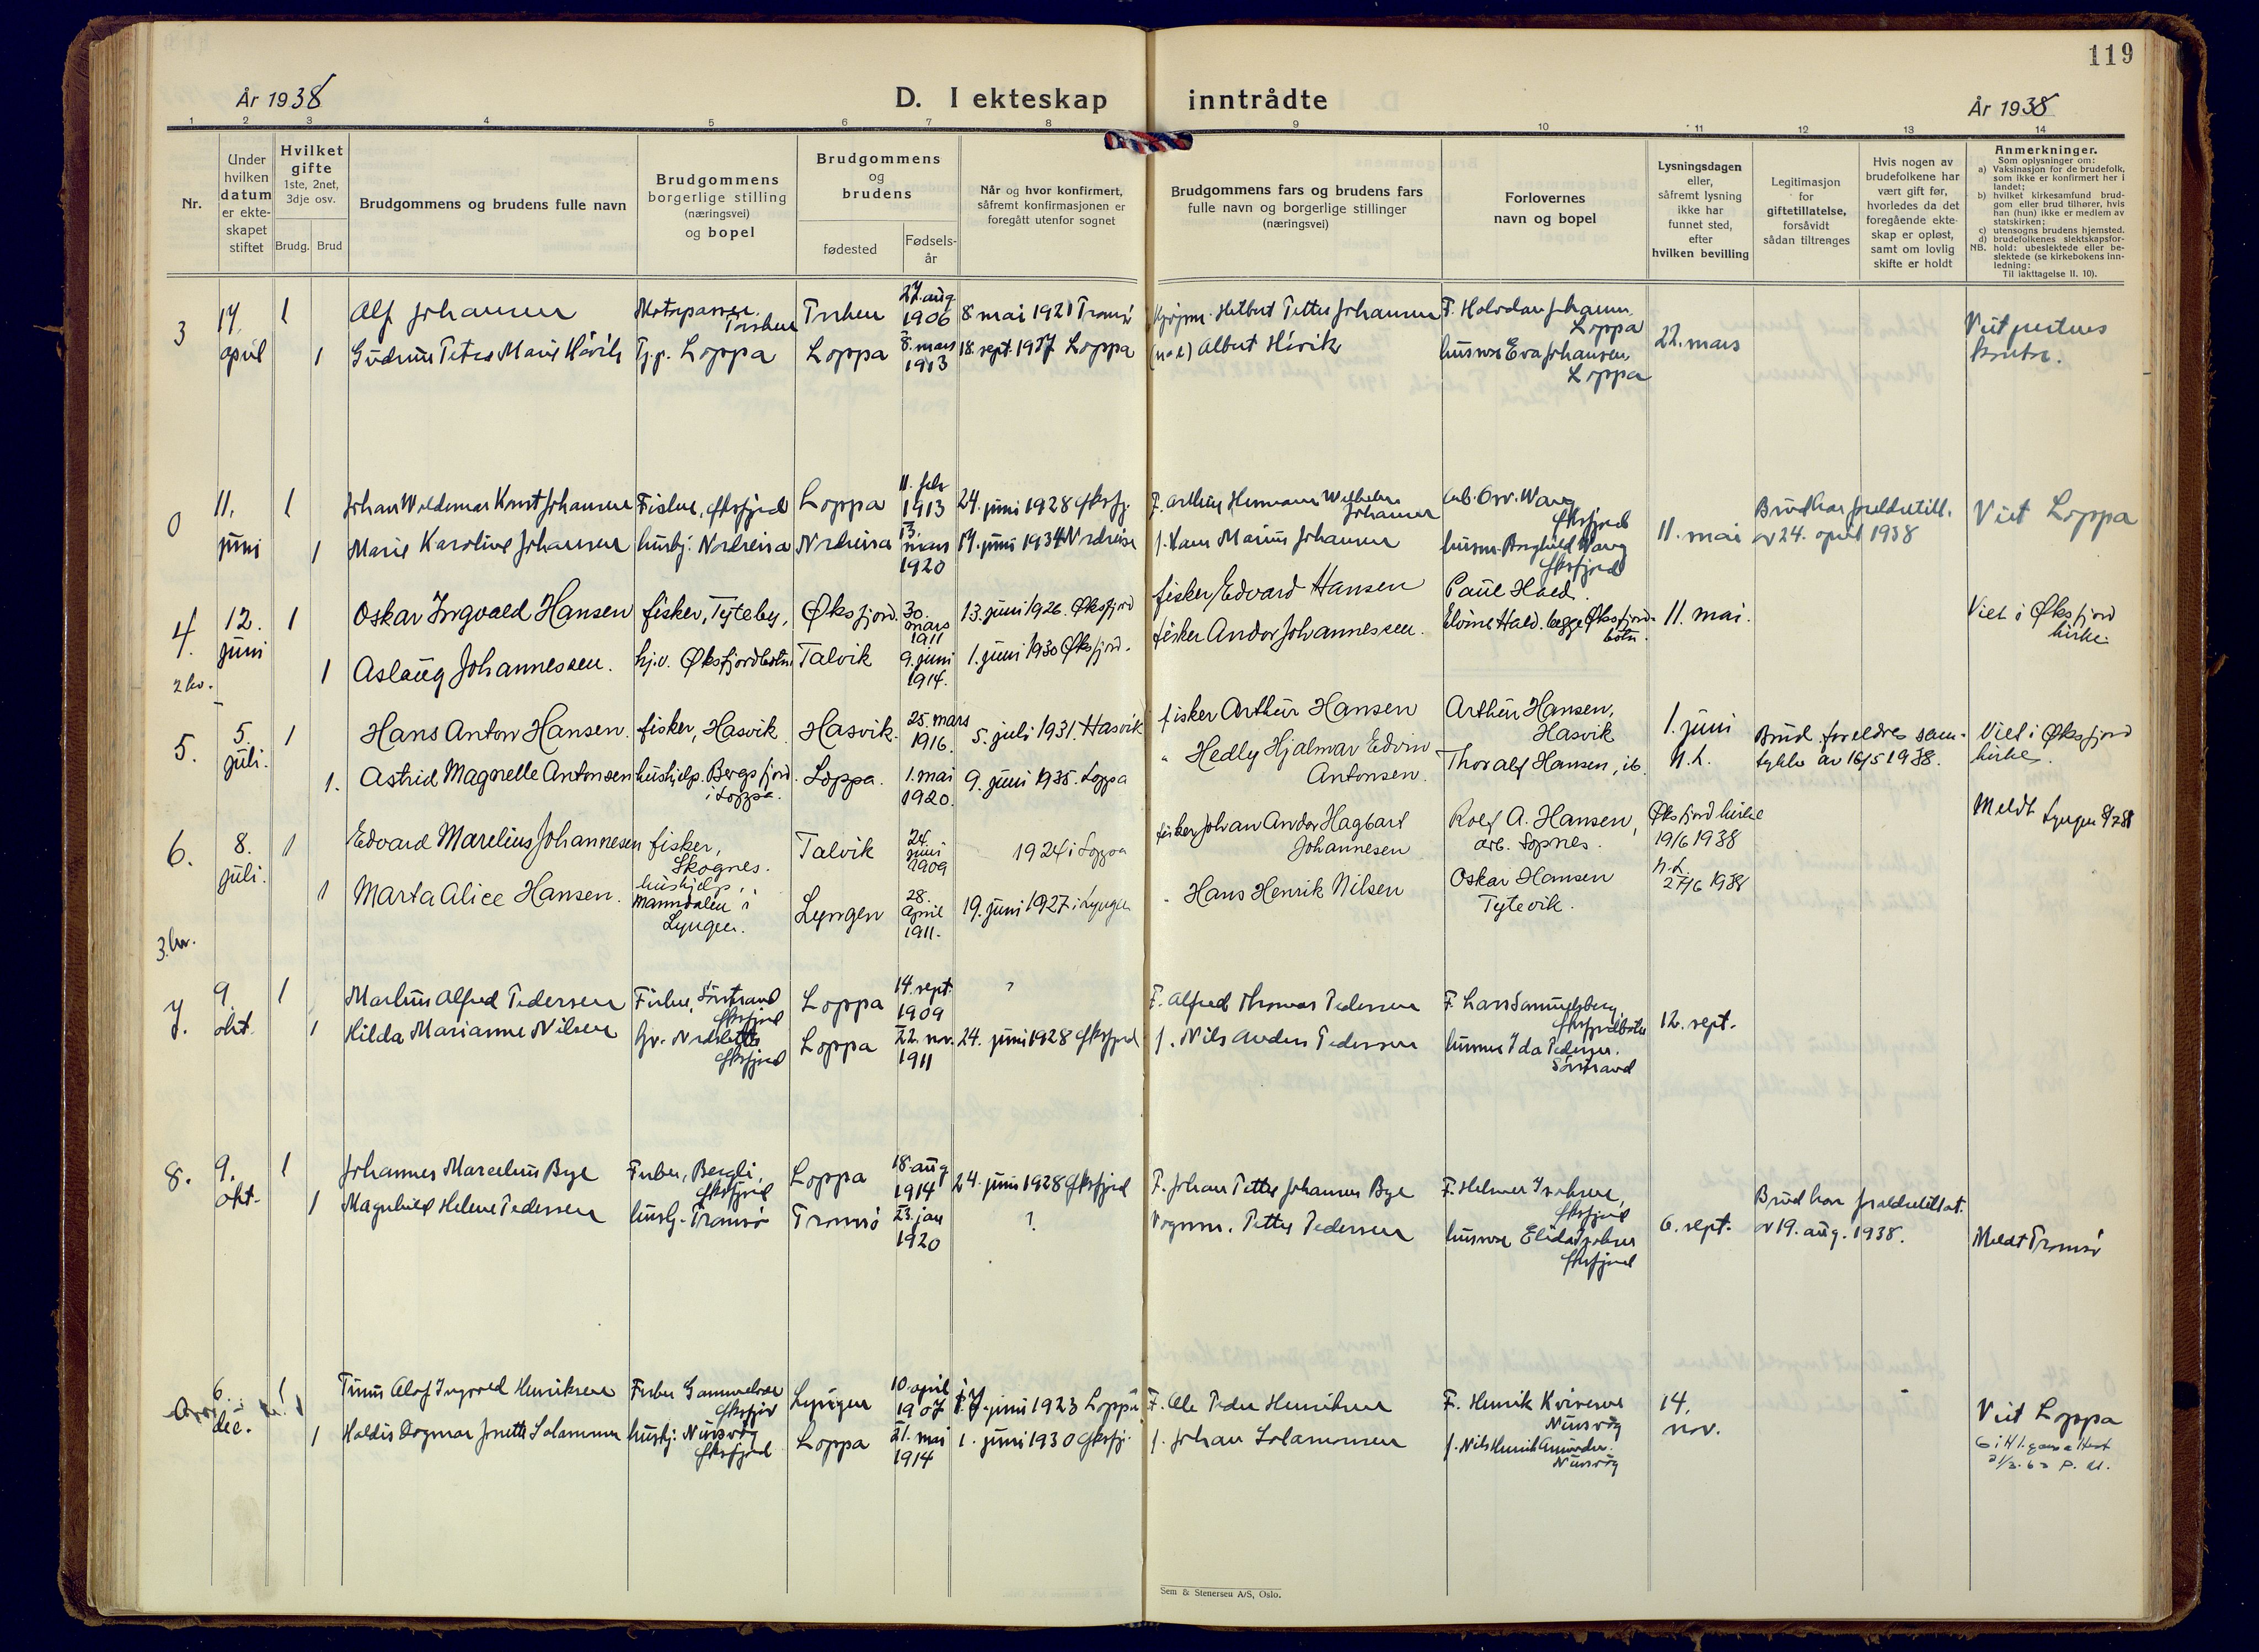 119
År 1938
D. I ekteskap inntrådte
År 1938
1 2 3 4 5 6 7 8 9 10 11 12 13 14
Nr.
Under
hvilken
datum
er ekte-
skapet
stiftet
Hvilket
gifte
1ste, 2net,
3dje osv.
Brudg. Brud
Brudgommens og brudens fulle navn
Brudgommens
borgerlige stilling
(næringsvei)
og bopel
Brudgommens
og
brudens
fødested
Fødsels-
år
Når og hvor konfirmert,
såfremt konfirmasjonen er
foregått utenfor sognet
Brudgommens fars og brudens fars
fulle navn og borgerlige stillinger
(næringsvei)
Forlovernes
navn og bopel
Lysningsdagen
eller,
såfremt lysning
ikke har
funnet sted,
efter
hvilken bevilling
Legitimasjon
for
giftetillatelse,
forsåvidt
sådan tiltrenges
Hvis nogen av
brudefolkene har
vært gift før,
hvorledes da det
foregående ekte-
skap er opløst,
samt om lovlig
skifte er holdt
Anmerkninger.
Som oplysninger om:
a) Vaksinasjon for de brudefolk,
som ikke er konfirmert her i
landet;
b) hvilket kirkesamfund brud-
gom eller brud tilhører, hvis
han (hun) ikke er medlem av
statskirken;
c) utensogns brudens hjemsted.
d) brudefolkenes slektskapsfor-
NB. hold: ubeslektede eller be-
slektede (se kirkebokens inn-
ledning:
Til iakttagelse II. 10).
3
17.
april
1
1
Alf Johansen
Gudrun Petra Marie Hårvik
Loppa
Loppa
27. aug
1906
8. mars
1913
8 mai 1921 Tromsø
18. sept. 1927 Loppa
Hilbert Petter Johansen
Albert Hårvik
F. Halvdan Johansen
Loppa
husmor Eva Johansen
Loppa
22. mars
0
11.
juni
1
1
Johan Woldemar Knut Johansen
Marie Karoline Johansen
Fisker, Øksfjord
hushj. Nordreisa
Loppa
Nordreisa
11. feb
1913
13.
mars
1920
24. juni 1928 Øksfj.
17. juni 1934 Nordreisa
F. Arthur Hermann Wilhelm
Johansen
f. Hans Marius Johansen
arb. Osv. Wang
Øksfjord
husm. Borghild Wang
Øksfjord
11. mai
Brud har foreldretill.
av 24. april 1938
Viet Loppa
4.
12.
juni
1
1
2 hv.
Oskar Ingvald Hansen
Aslaug Johannessen.
fisker, Tyteby,
hj.v. Øksfjordbotn
Øksfjord.
Talvik
30.
mars
1911
9. juni
1914.
13. juni 1926. Øksfjord
1. juni 1930 Øksfjord.
fisker Edvard Hansen
fisker Andor Johannessen.
Paul Hald.
Elvine Hald. begge Øksfjord-
botn.
11. mai.
Viet i Øksfjord
kirke.
5.
5.
juli.
1
1.
Hans Anton Hansen.
Astrid Magnelle Antonsen
fisker, Hasvik
hushjelp. Bergsfjord.
i Loppa.
Hasvik.
Loppa.
25. mars
1916.
1. mai
1920.
5. juli 1931. Hasvik
9. juni 1935. Loppa
fisker Arthur Hansen
" Hedly Hjalmar Edvin
Antonsen.
Arthur Hansen,
Hasvik
Thoralf Hansen, ib.
1. juni
h.t.
Brud. foreldres sam-
tykke av 16/5 1938.
Viet i Øksfjord
kirke.
6.
8.
juli.
1
1
3. hv.
Edvard Marelius Johannesen
Marta Alice Hansen.
fisker,
Skognes.
hushjelp,
Manndalen i
Lyngen.
Talvik
Lyngen
24.
juni
1909
28.
april
1911.
1924 i Loppa
19. juni 1927 i Lyngen
fisker Johan Andor Hagbart
Johannesen
" Hans Henrik Nilsen
Rolf A. Hansen,
arb. Sopnes.
Oskar Hansen
Tytevik.
Øksfjord kirke
19/6 1938
h.t.
27/6 1938
Meldt Lyngen 8/7 38
7.
9.
okt.
1
1
Marlius Alfred Pedersen
Hilda Marianne Nilsen
Fisker, Sørstrand
Øksfjord
hv. Nordsletta
Øksfjord
Loppa
Loppa
14. sept.
1909
22. nov.
1911
?
24. juni 1928 Øksfjord
F. Alfred Thomas Pedersen
f. Nils Anders Pedersen
F. Lars Samuelsberg,
Øksfjordbotn
husmor Ida Pedersen.
Sørstrand
12. sept.
8.
9.
okt.
1
1
Johannes Marcelius Bye
Magnhild Helene Pedersen
Fisker, Bergli,
Øksfjord
hushj. Tromsø
Loppa
Tromsø
18. aug
1914
23. jan
1920
24. juni 1928 Øksfjord
?
F. Johan Petter Johansen Bye
Petter Pedersen
F. Helmer Isaksen,
Øksfjord
husmor Elida Isaksen
Øksfjord
6. sept.
Brud har foreldretillat.
av 19. aug. 1938.
Meldt Tromsø
6.
dec.
1
1
Tinus Olaf Ingvald Henriksen
Haldis Dagmar Jonette Salamonsen
Fisker
Øksfjord
hushj. Nuvsvåg
Øksfjord
Lyngen
Loppa
10. april
1907
21. mai
1914
17. juni 1923 Loppa
1. juni 1930 Øksfj.
F. Ole Peder Henriksen
f. Johan Salamonsen
F. Henrik Kvivesen
Nuvsvåg
f. Nils Henrik
Nuvsvåg
14.
nov.
Viet Loppa
Sem & Stenersen A/S, Oslo.